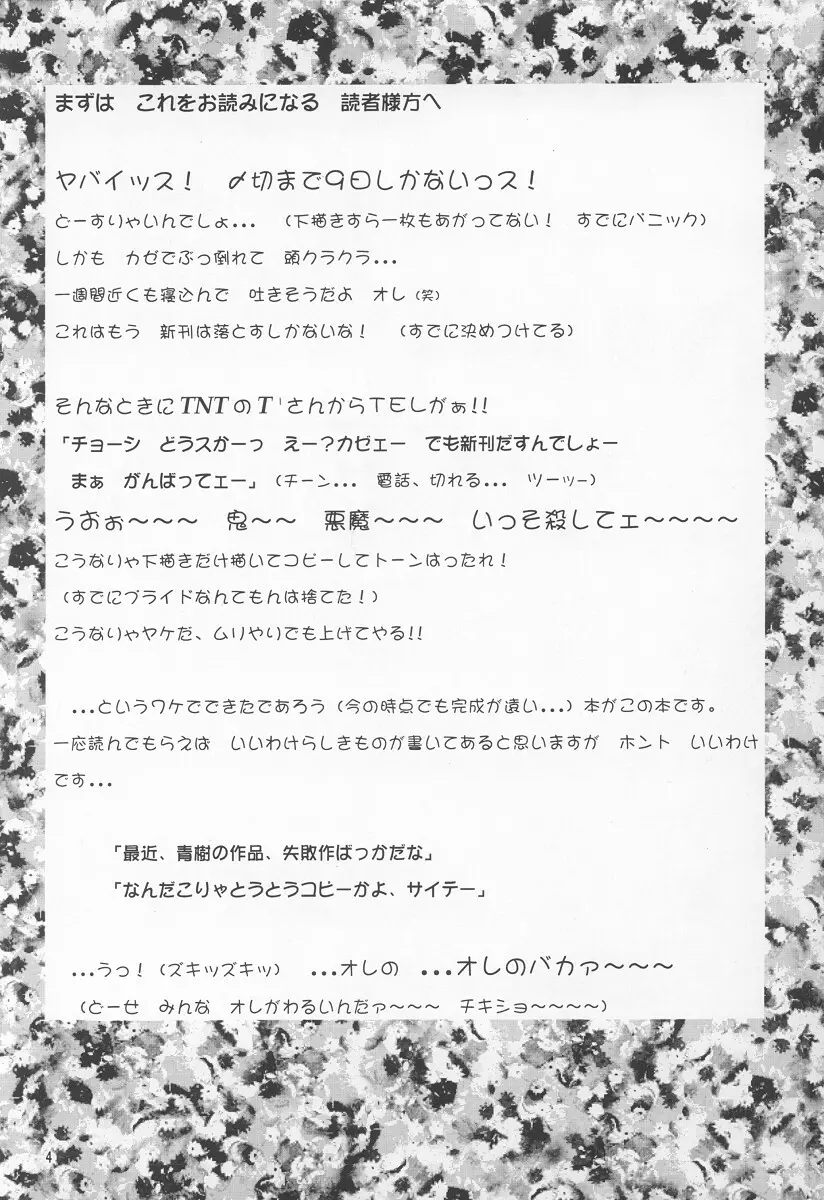 まずは　これをお読みになる　読者様方へ
ヤバイッス！　〆切まで9日しかないっス！
どーすりゃいんでしょ…　（下描きすら一枚もあがってない！　すでにパニック）
しかも　カゼでぶっ倒れて　頭クラクラ…
一週間近くも寝込んで　吐きそうだよ　オレ（笑）
これはもう　新刊は落とすしかないな！　（すでに決めつけてる）
そんなときにTNTのT'さんからTELがぁ!!
「チョーシ　どうスかーっ　えー？カゼェー　でも新刊だすんでしょー
まぁ　がんばってェー」（チーン…　電話、切れる…　ツーッー）
うおぉ～～～　鬼～～　悪魔～～～　いっそ殺してェ～～～～
こうなりゃ下描きだけ描いてコピーしてトーンはったれ！
（すでにプライドなんてもんは捨てた！）
こうなりゃヤケだ、ムリやりでも上げてやる!!
…というワケでできたであろう（今の時点でも完成が遠い…）本がこの本です。
一応読んでもらえば　いいわけらしきものが書いてあると思いますが　ホント　いいわけ
です…
「最近、青樹の作品、失敗作ばっかだな」
「なんだこりゃとうとうコピーかよ、サイテー」
…うっ！（ズキッズキッ）　…オレの　…オレのバカァ～～～
（どーせ　みんな　オレがわるいんだァ～～～　チキショ～～～～）
4